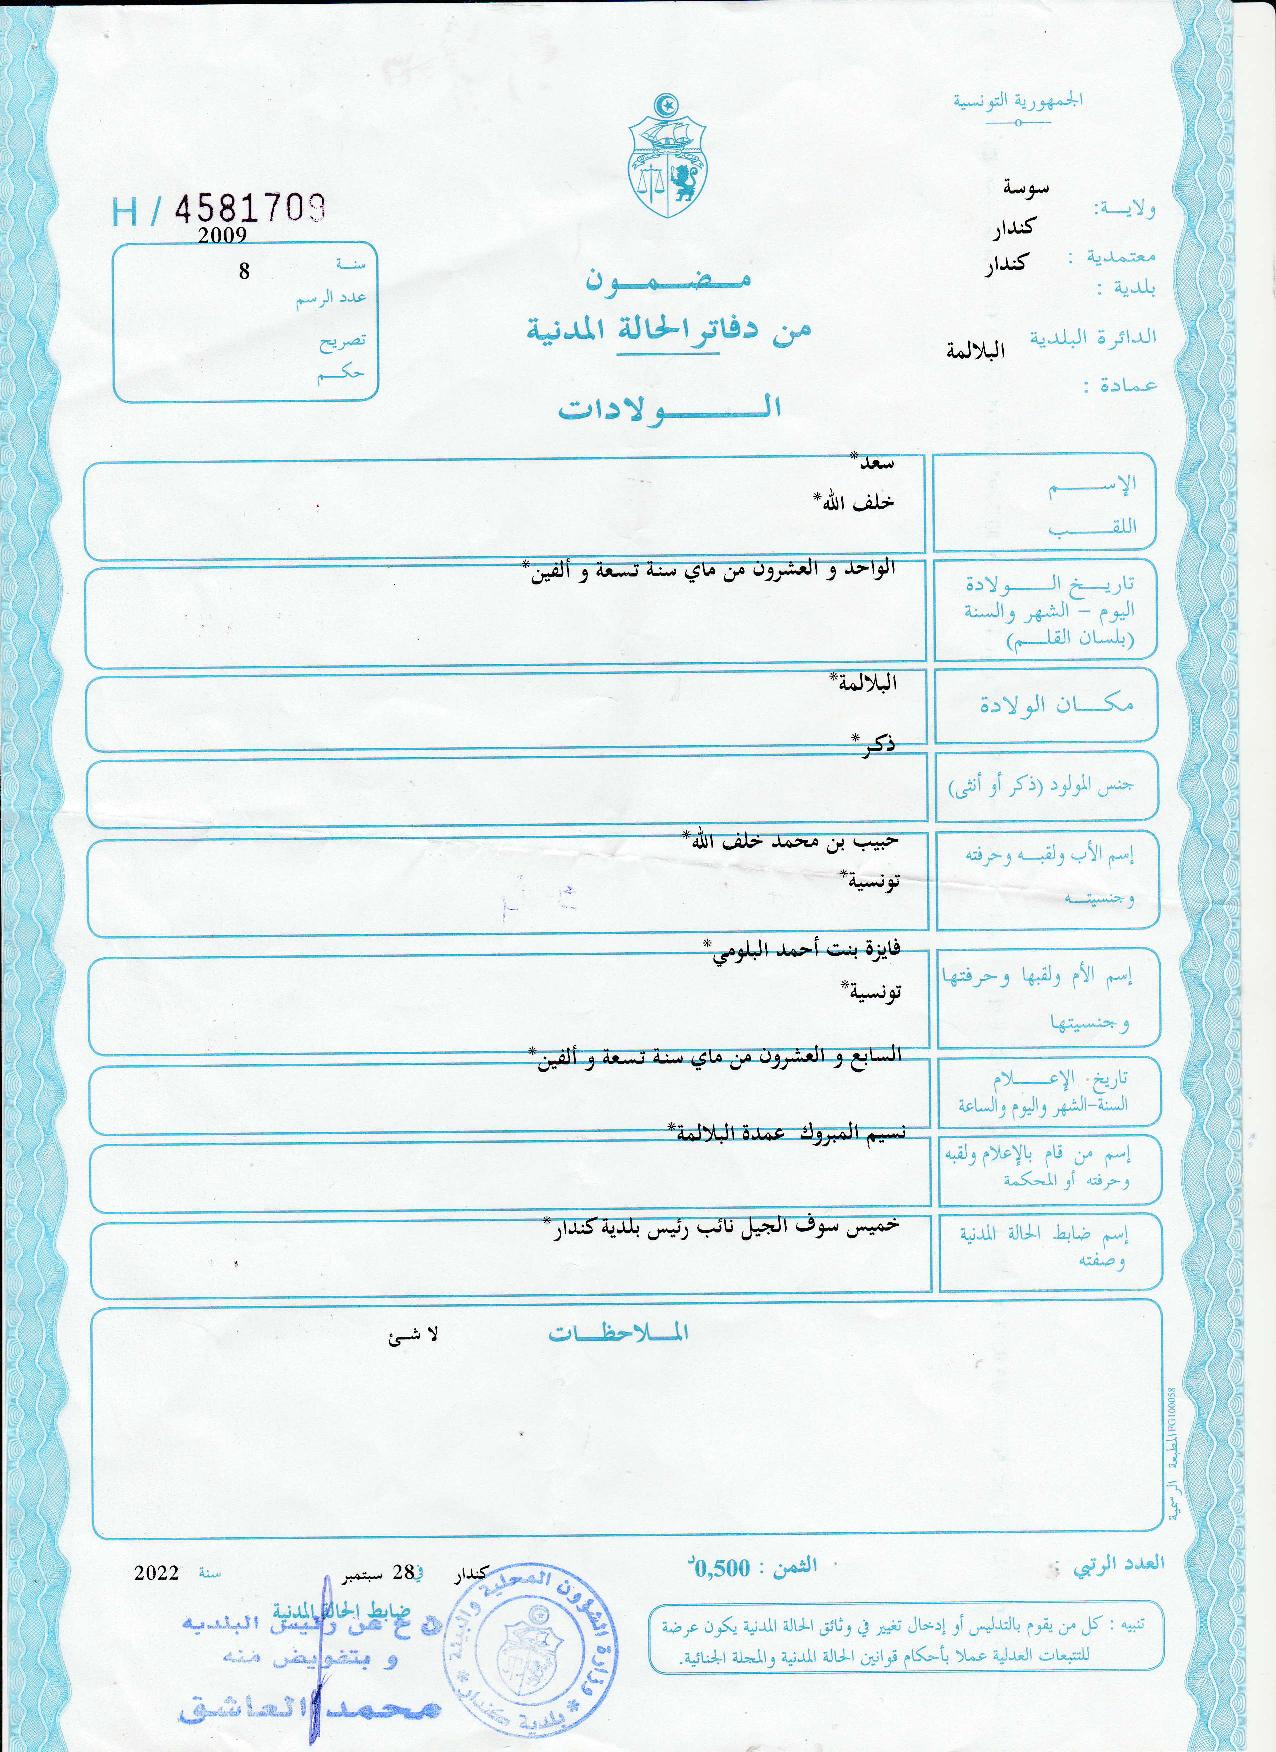 الجمهورية التونسية
ولايـــة:
سوسة
معتمدية :
كندار
بلدية :
كندار
الدائرة البلدية
البلالمة
عمادة :
H / 4581709
سنـة
2009
عدد الرسم
8
تصريح
حكــم
مـــضـــمـــون
من دفاتر الحالة المدنية
الـــــــولادات
الإســـــم
سعد*
اللقـــــب
خلف الله*
تاريـــخ الـــــولادة
اليوم - الشهر والسنة
(بلسان القلـــم)
الواحد و العشرون من ماي سنة تسعة و ألفين*
مكـــان الولادة
البلالمة*
جنس المولود (ذكر أو أنثى)
ذكر*
إسم الأب ولقبـــه وحرفته
وجنسيتـــه
حبيب بن محمد خلف الله*
تونسية*
إسم الأم ولقبها وحرفتها
وجنسيتها
فايزة بنت أحمد البلومي*
تونسية*
تاريخ الإعـــــلام
السنة-الشهر واليوم والساعة
السابع و العشرون من ماي سنة تسعة و ألفين*
إسم من قام بالإعلام ولقبه
وحرفته أو المحكمة
نسيم المبروك عمدة البلالمة*
إسم ضابط الحالة المدنية
وصفته
خميس سوف الجيل نائب رئيس بلدية كندار*
الملاحظـــات
لا شئ
المطبعة الرسمية FG100058
العدد الرتبي :
الثمن : 0,500د
كندار في 28 سبتمبر سنة 2022
ضابط الحالة المدنية
تنبيه : كل من يقوم بالتدليس أو إدخال تغيير في وثائق الحالة المدنية يكون عرضة
للتتبعات العدلية عملا بأحكام قوانين الحالة المدنية والمجلة الجنائية.
عن رئيس البلدية
و بتفويض منه
محمد العاشق
وزارة الشؤون المحلية والبيئة
* بلدية كندار *